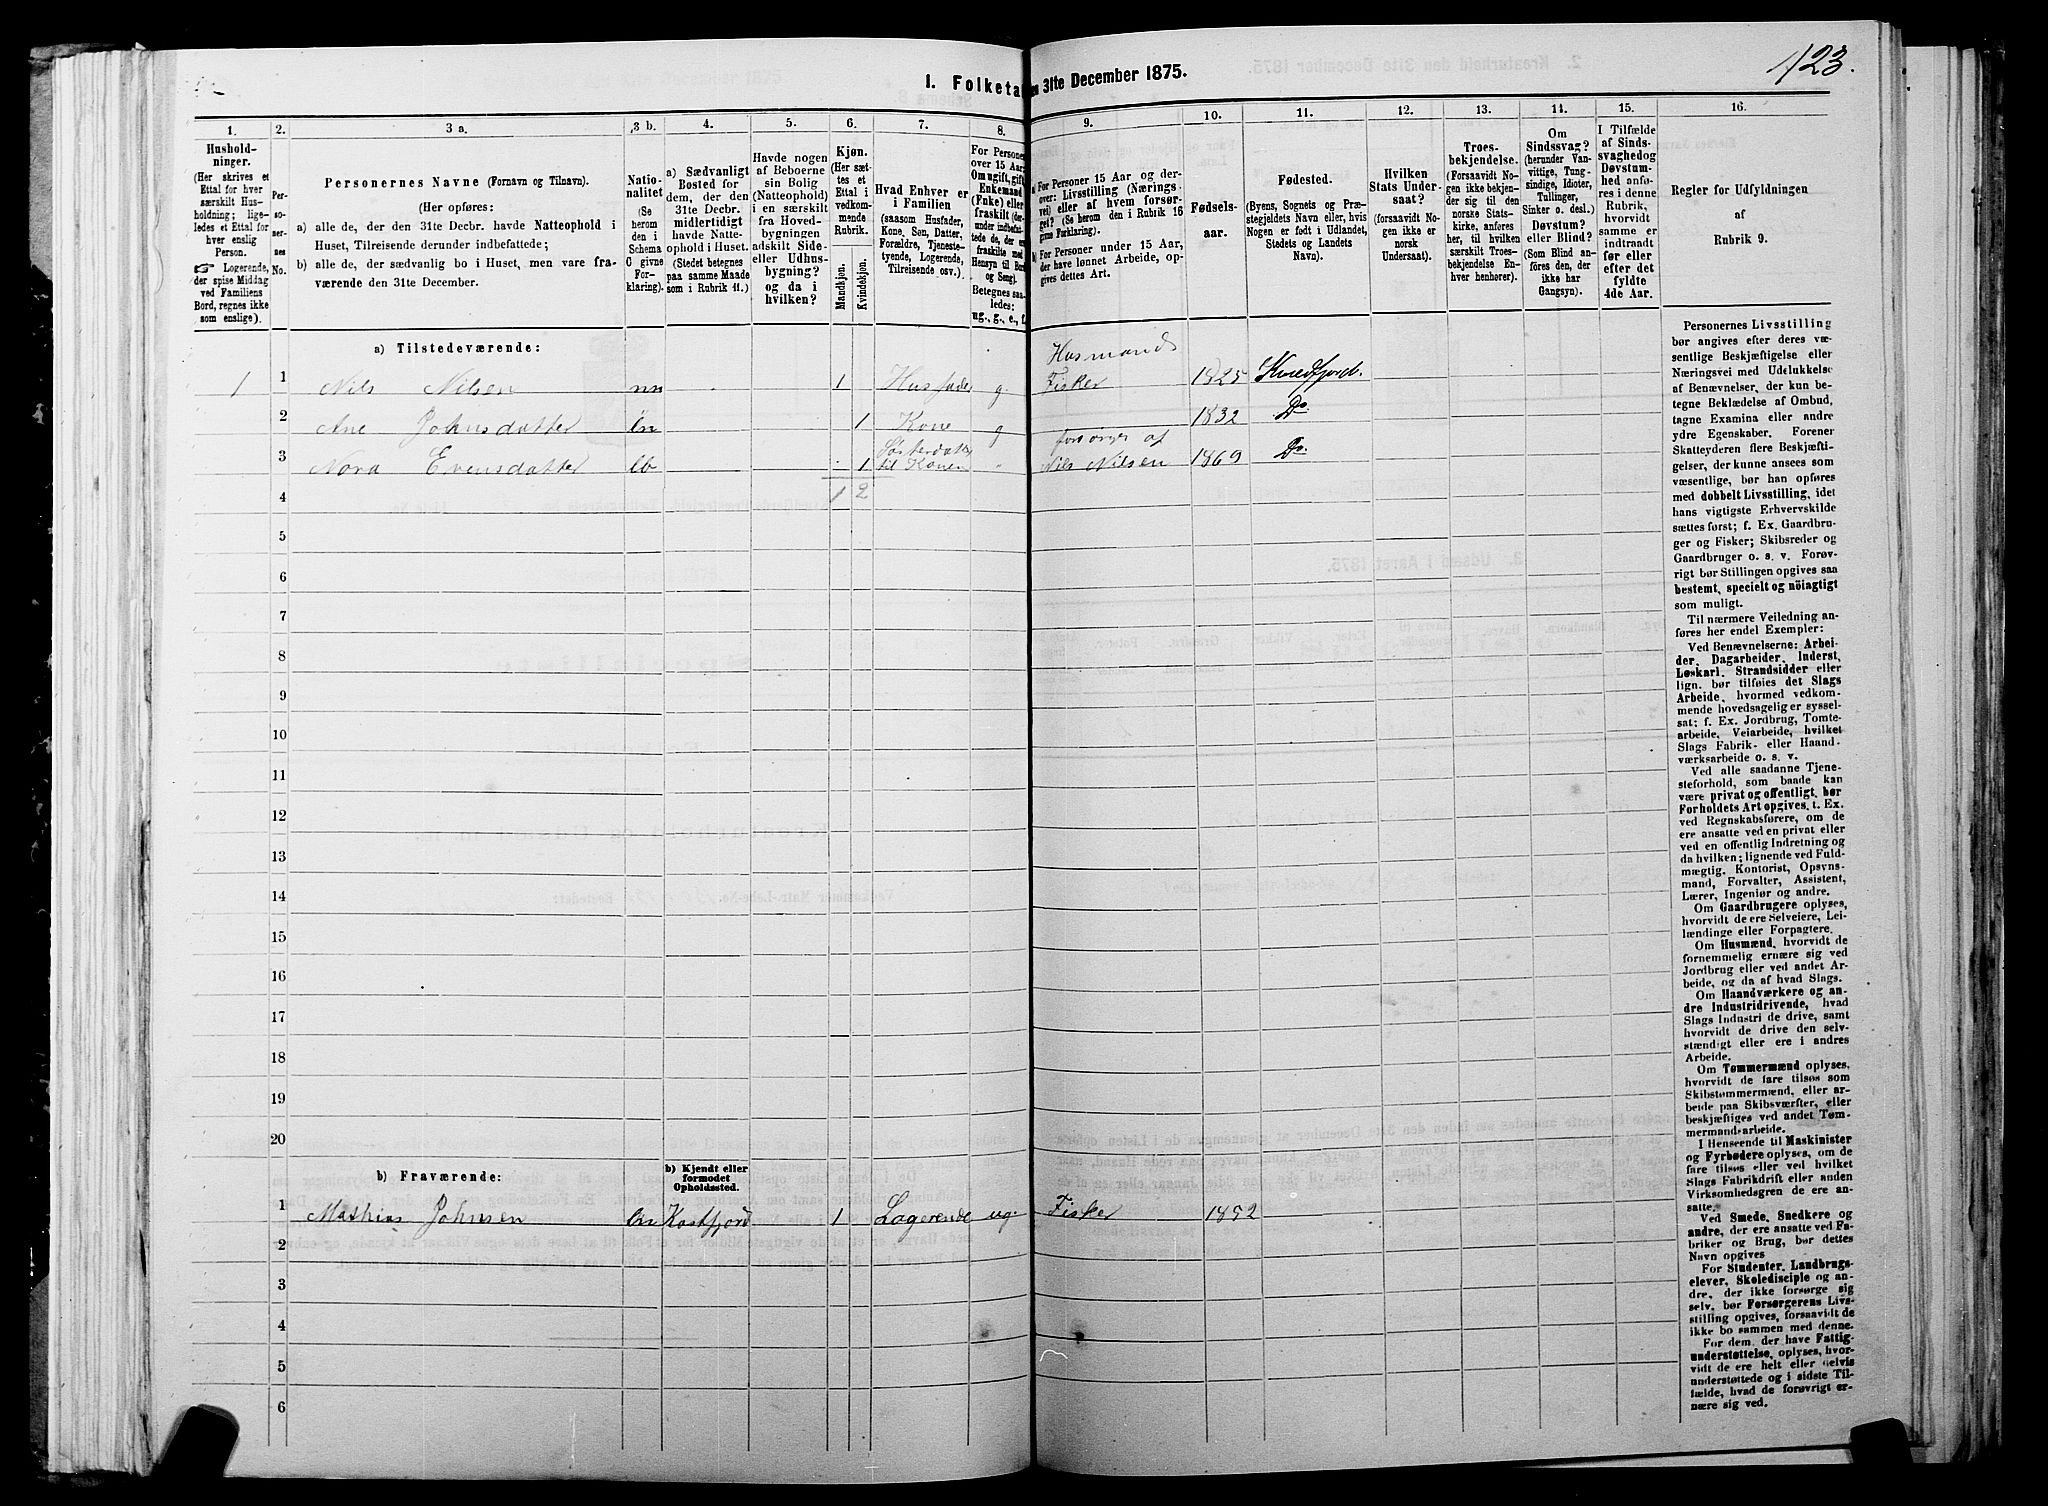 1123.
I. Folketa en 31te December 1875.
1. 2. 3 a. 3 b. 4. 5. 6. 7. 8. 9. 10. 11. 12. 13. 14. 15. 16.
Hushold-
ninger.
(Her skrives et
Ettal for hver
særskilt Hus-
holdning; lige-
ledes et Ettal for
hver enslig
Person.
☞ Logerende,
der spise Middag
ved Familiens
Bord, regnes ikke
som enslige).
Per-
so-
ner-
nes
No.
Personernes Navne (Fornavn og Tilnavn).
(Her opføres:
a) alle de, der den 31te Decbr. havde Natteophold i
Huset, Tilreisende derunder indbefattede;
b) alle de, der sædvanlig bo i Huset, men vare fra-
værende den 31te December.
Natio-
nalitet
(Se
herom
den i
Schema
C givne
For-
klaring).
a) Sædvanligt
Bosted for
dem, der den
31te Decbr.
midlertidigt
havde Natte-
ophold i Huset.
(Stedet betegnes
paa samme Maade
som i Rubrik 11.)
Havde nogen
af Beboerne
sin Bolig
(Natteophold)
i en særskilt
fra Hoved-
bygningen
adskilt Side-
eller Udhus-
bygning?
og da i
hvilken?
Kjøn.
(Her sæt-
tes et
Ettal i
vedkom-
mende
Rubrik.
Mandkjøn.
Kvindekjøn.
Hvad Enhver er
i Familien
(saasom Husfader,
Kone, Søn, Datter,
Forældre, Tjeneste-
tyende, Logerende,
Tilreisende osv.).
For Personer
over 15 Aar:
Om ugift, gift,
Enkemand
(Enke) eller
fraskilt (der-
under indbefat-
tede de, der ere
fraskilte med
Hensyn til Bord
og Seng).
Betegnes saa-
ledes:
ug., g., e., f.
a For Personer 15 Aar og der-
over: Livsstilling (Nærings-
vei) eller af hvem forsør-
get? (Se herom den i Rubrik 16
givne Forklaring).
b) For Personer under 15 Aar,
der have lønnet Arbeide, op-
gives dettes Art.
Fødsels-
aar.
Fødested.
(Byens, Sognets og Præ-
stegjeldets Navn eller, hvis
Nogen er født i Udlandet,
Stedets og Landets
Navn).
Hvilken
Stats Under-
saat?
(forsaavidt No-
gen ikke er
norsk
Undersaat).
Troes-
bekjendelse.
(Forsaavidt No-
gen ikke bekjen-
der sig til den
norske Stats-
kirke, anføres
her, til hvilken
særskilt Troes-
bekjendelse En-
hver henhører).
Om
Sindssvag?
(herunder Van-
vittige, Tung-
sindige, Idioter,
Tullinger,
Sinker o. desl.)
Døvstum?
eller Blind?
(Som Blind an-
føres den, der
ikke har
Gangsyn).
I Tilfælde
af Sinds-
svaghed og
Døvstum-
hed anfø-
res i denne
Rubrik,
hvorvidt
samme er
indtraadt
før eller
efter det
fyldte
4de Aar.
Regler for Udfyldningen
af
Rubrik 9.
a) Tilstedeværende:
Husmand
1 1 Nils Nilsen nn 1 Husfader g. Fisker 1825 Kvedfjord.
2 Ane Johnsdatter 1 Kone g 1832 Do
Søsterdatter forsørges af
3 Nora Evensdatter lb 1 til Konen " Nils Nilsen 1869 Do.
4 1 2
5
6
7
8
9
10
11
12
13
14
15
16
17
18
19
20
b) Fraværende:
b) Kjendt eller
formodet
Opholdssted.
1 Mathias Johnsen Kastfjord 1 Logerende ug. Fisker 1852
2
3
4
5
6
Personernes Livsstilling
bør angives efter deres væ-
sentlige Beskjæftigelse eller
Næringsvei med Udelukkelse
af Benævnelser, der kun be-
tegne Beklædelse af Ombud,
tagne Examina eller andre
ydre Egenskaber. Forener
Skatteyderen flere Beskjæfti-
gelser, der kunne ansees som
væsentlige, bør han opføres
med dobbelt Livsstilling, idet
hans vigtigste Erhvervskilde
sættes først; f. Ex. Gaardbru-
ger og Fisker; Skibsreder og
Gaardbruger o. s. v. Forøv-
rigt bør Stillingen opgives saa
bestemt, specielt og nöiagtigt
som muligt.
Til nærmere Veiledning an-
føres her endel Exempler:
Ved Benævnelserne: Arbei-
der, Dagarbeider, Inderst,
Løskarl, Strandsidder eller
lign. bør tilføies det Slags
Arbeide, hvormed vedkom-
mende hovedsagelig er syssel-
sat; f. Ex. Jordbrug, Tomte-
arbeide, Veiarbeide, hvilket
Slags Fabrik- eller Haand-
værksarbeide o. s. v.
Ved alle saadanne Tjene-
steforhold, som baade kan
være privat og offentligt, bør
Forholdets Art opgives, t. Ex.
ved Regnskabsførere, om de
ere ansatte ved en privat eller
ved en offentlig Indretning og
da hvilken; lignende ved Fuld-
mægtig, Kontorist, Opsyns-
mand, Forvalter, Assistent,
Lærer, Ingeniør og andre.
Om Gaardbrugere oplyses,
hvorvidt de ere Selveiere, Lei-
lændinge eller Forpagtere.
Om Husmænd, hvorvidt de
fornemmelig ernære sig ved
Jordbrug eller ved andet Ar-
beide, og da af hvad Slags.
Om Haandværkere og an-
dre Industridrivende, hvad
Slags Industri de drive, samt
hvorvidt de drive den selv-
stændigt eller ere i andres
Arbeide.
Om Tømmermænd oplyses,
hvorvidt de fare tilsøs som
Skibstømmermænd, eller ar-
beide paa Skibsværfter, eller
beskjæftiges ved andet Tøm-
mermandsarbeide.
I Henseende til Maskinister
og Fyrbødere oplyses, om de
fare tilsøs eller ved hvilket
Slags Fabrikdrift eller anden
Virksomhedsgren de ere an-
satte.
Ved Smede, Snedkere og
andre, der ere ansatte ved Fa-
briker og Brug, bør dettes
Navn opgives
For Studenter, Landbrugs-
elever, Skoledisciple og an-
dre, der ikke forsørge sig
selv, bør Forsørgerens Livs-
stilling opgives, forsaavidt de
ikke bo sammen med denne.
For dem, der have Fattig-
understøttelse, oplyses, hvor-
vidt de ere helt eller delvis
understøttede og i sidste Til-
fælde, hvad de forøvrigt er-
nære sig ved.